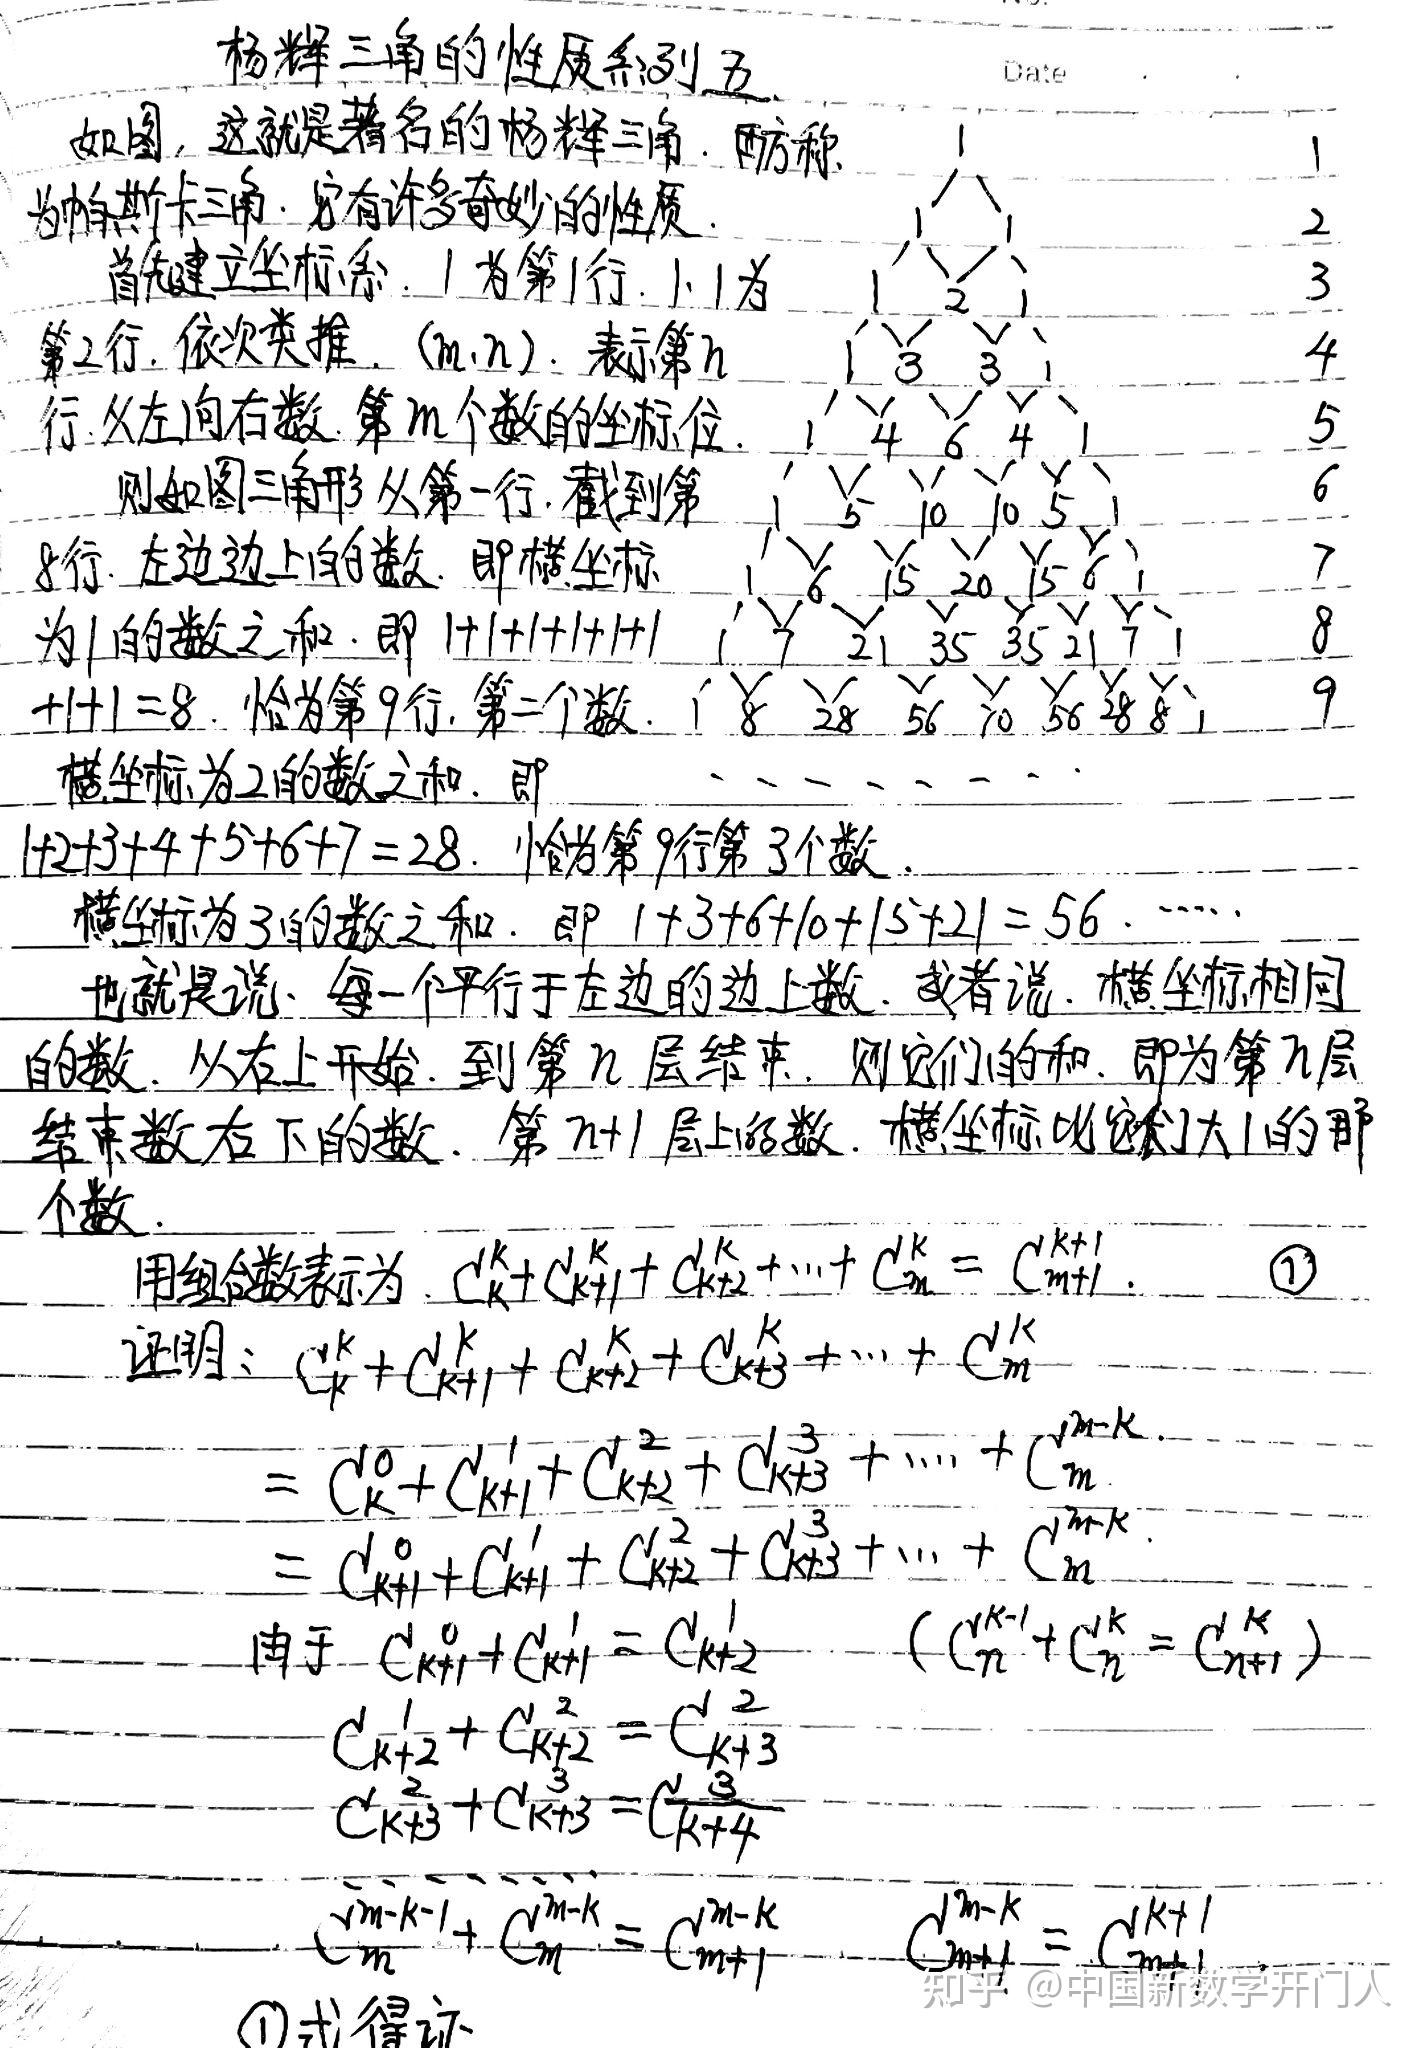 No.
杨辉三角的性质系列五
Date
如图,这就是著名的杨辉三角.西方称
为帕斯卡三角.它有许多奇妙的性质.
首先建立坐标系.1为第1行.1、1为
第2行.依次类推.(m,n).表示第n
行.从左向右数.第m个数的坐标位.
则如图三角形从第一行.截到第
8行.左边边上的数.即横坐标
为1的数之和.即1+1+1+1+1+1
+1+1=8.恰为第9行.第二个数.
1 1
1 1 2
1 2 1 3
1 3 3 1 4
1 4 6 4 1 5
1 5 10 10 5 1 6
1 6 15 20 15 6 1 7
1 7 21 35 35 21 7 1 8
1 8 28 56 70 56 28 8 1 9
横坐标为2的数之和.即
1+2+3+4+5+6+7=28.恰为第9行第3个数.
横坐标为3的数之和.即 1+3+6+10+15+21=56.……
也就是说、每一个平行于左边的边上数.或者说.横坐标相同
的数.从右上开始.到第n层结束.则它们的和.即为第n层
结束数右下的数.第n+1层上的数.横坐标比它们大1的那
个数.
用组合数表示为.C_k^k+C_{k+1}^k+C_{k+2}^k+…+C_m^k=C_{m+1}^{k+1}. ①
证明:C_k^k+C_{k+1}^k+C_{k+2}^k+C_{k+3}^k+…+C_m^k
=C_k^0+C_{k+1}^1+C_{k+2}^2+C_{k+3}^3+…+C_m^{m-k}.
=C_{k+1}^0+C_{k+1}^1+C_{k+2}^2+C_{k+3}^3+…+C_m^{m-k}.
由于 C_{k+1}^0+C_{k+1}^1=C_{k+2}^1 (C_n^{k-1}+C_n^k=C_{n+1}^k)
C_{k+2}^1+C_{k+2}^2=C_{k+3}^2
C_{k+3}^2+C_{k+3}^3=C_{k+4}^3
C_m^{m-k-1}+C_m^{m-k}=C_{m+1}^{m-k} C_{m+1}^{m-k}=C_{m+1}^{k+1}.
①式得证
知乎 @中国新数学开门人